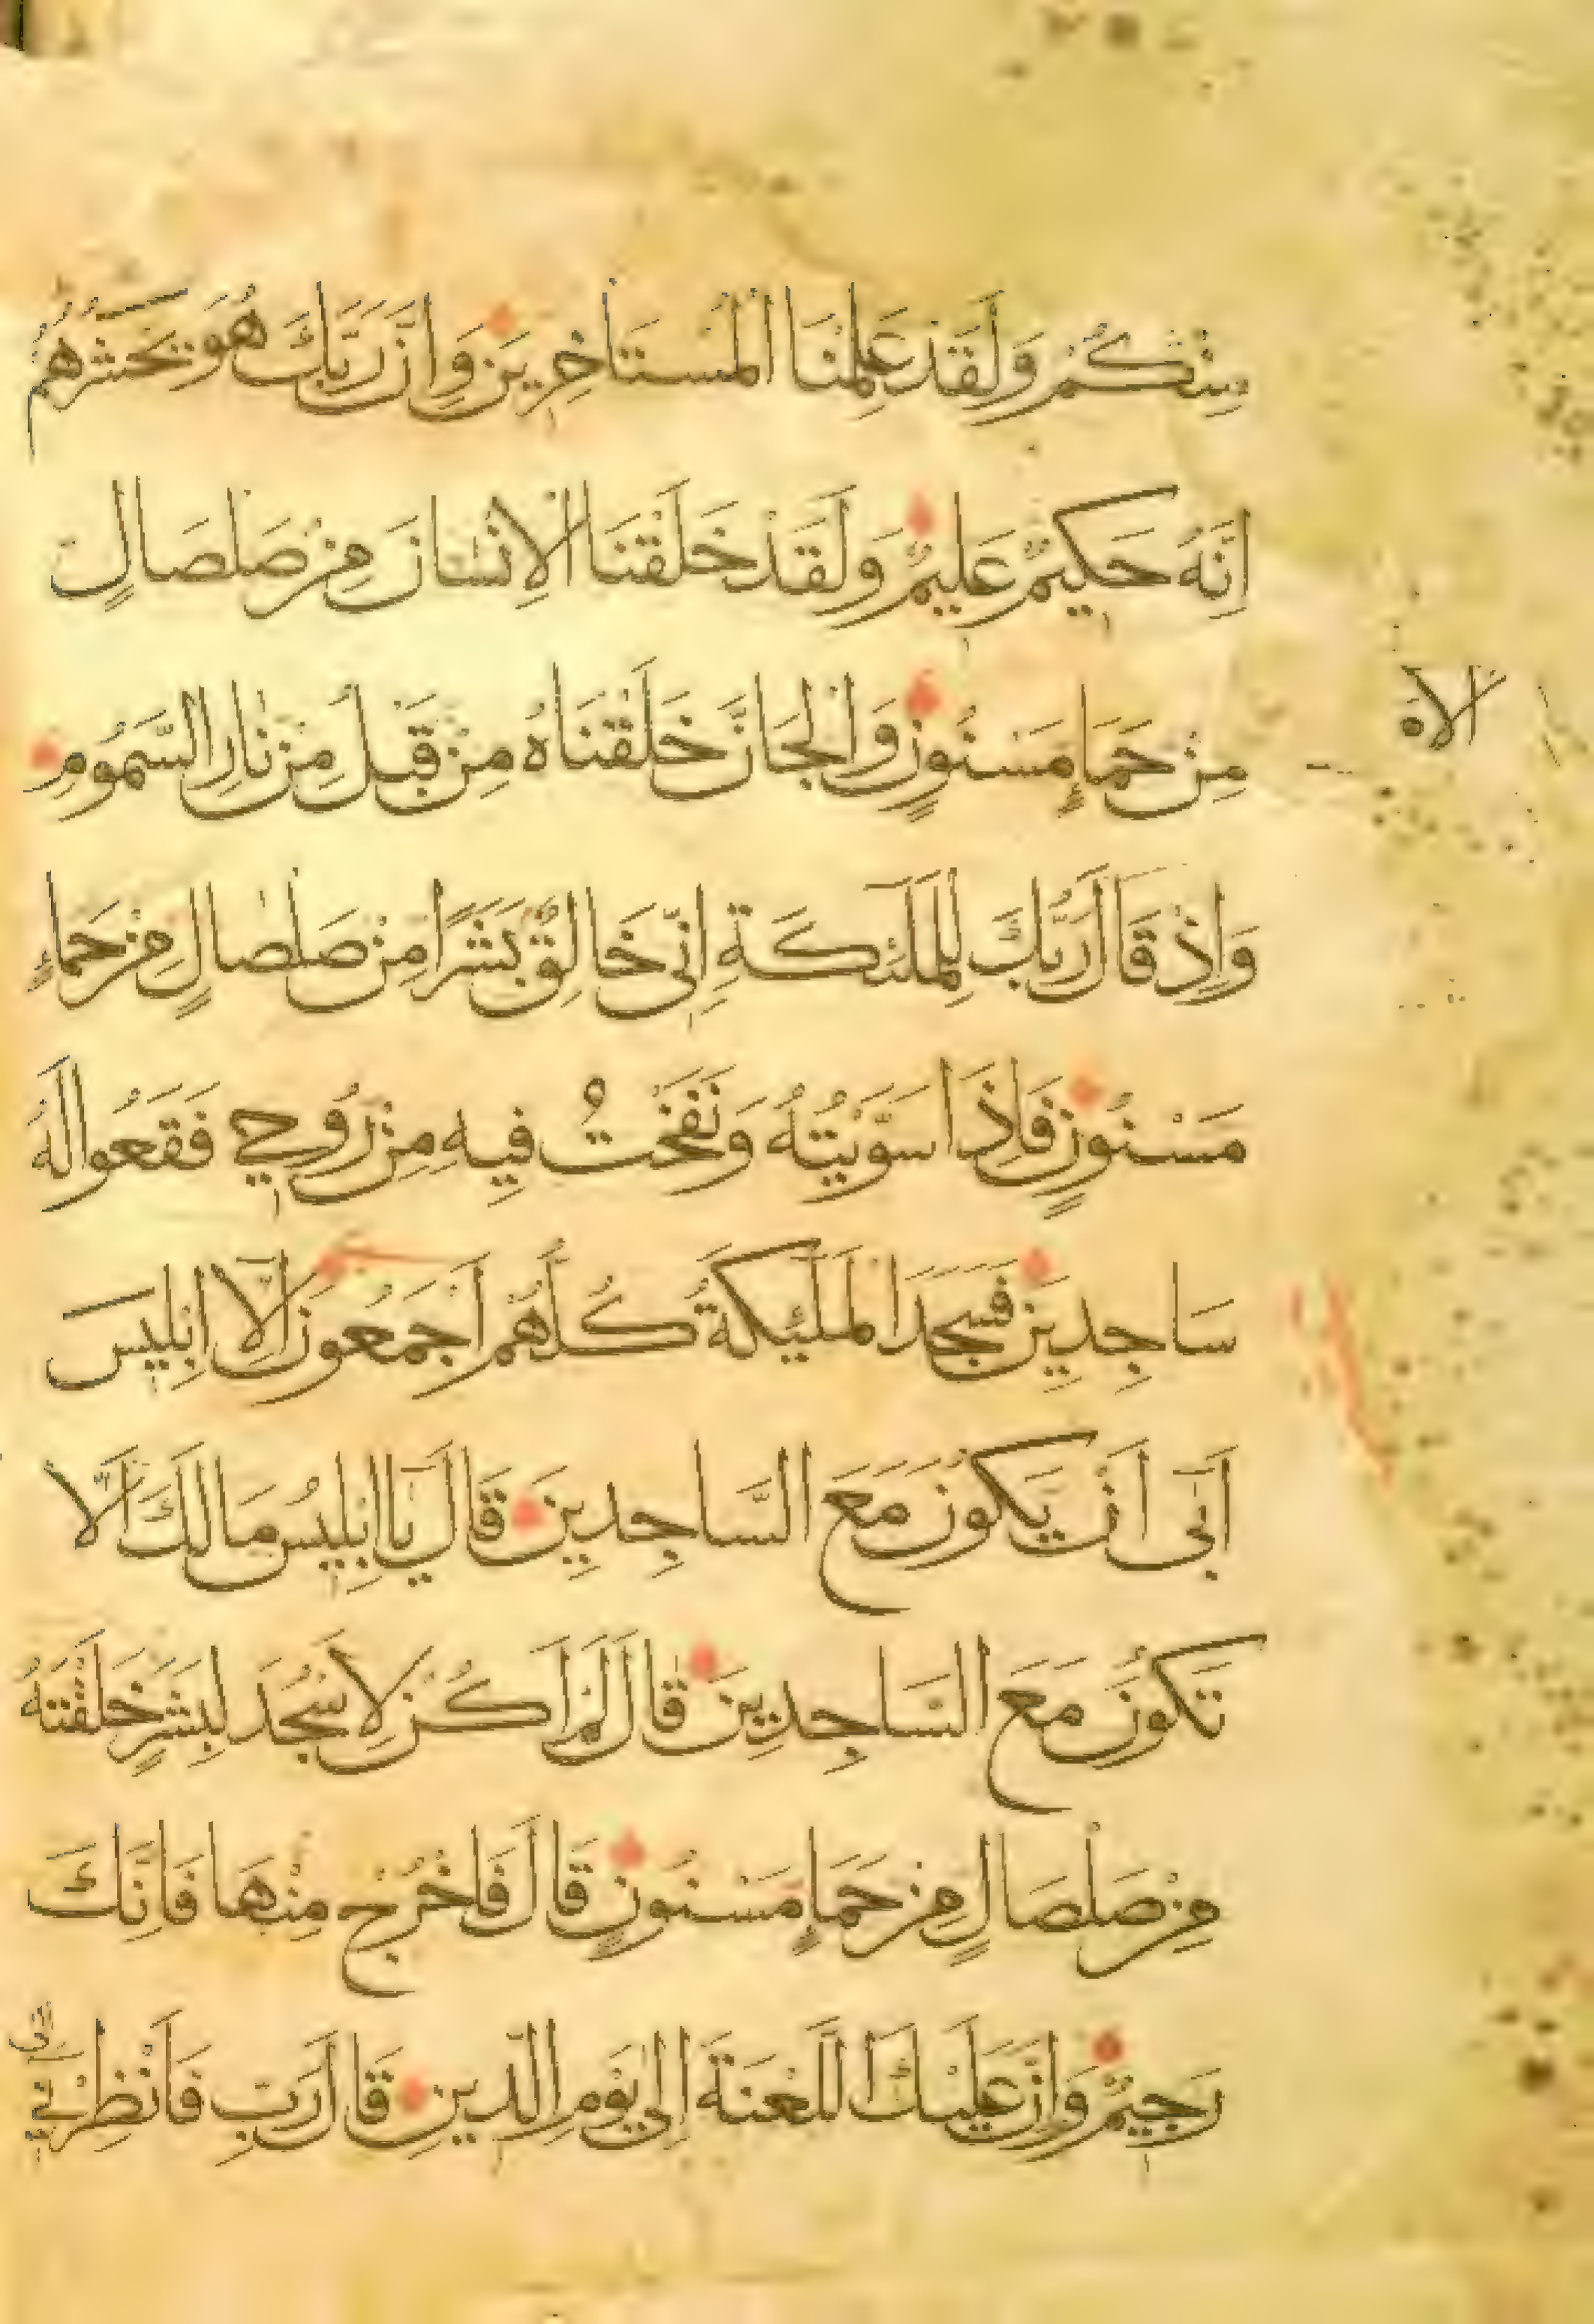 مِنْكُمْ وَلَقَدْ عَلِمْنَا الْمُسْتَاخِرِينَ وَاِنَّ رَبَّكَ هُوَ يَحْشُرُهُمْ
اِنَّهُ حَكِيمٌ عَلِيمٌ وَلَقَدْ خَلَقْنَا الْاِنْسَانَ مِنْ صَلْصَالٍ
مِنْ حَمَاٍ مَسْنُونٍ وَالْجَانَّ خَلَقْنَاهُ مِنْ قَبْلُ مِنْ نَارِ السَّمُومِ
الاه
وَاِذْ قَالَ رَبُّكَ لِلْمَلٰئِكَةِ اِنِّى خَالِقٌ بَشَرًا مِنْ صَلْصَالٍ مِنْ حَمَاءٍ
مَسْنُونٍ فَاِذَا سَوَّيْتُهُ وَنَفَخْتُ فِيهِ مِنْ رُوحِى فَقَعُوا لَهُ
سَاجِدِينَ فَسَجَدَ الْمَلٰئِكَةُ كُلُّهُمْ اَجْمَعُونَ اِلَّا اِبْلِيسَ
اَبَى اَنْ يَكُونَ مَعَ السَّاجِدِينَ قَالَ يَا اِبْلِيسُ مَا لَكَ اَلَّا
تَكُونَ مَعَ السَّاجِدِينَ قَالَ لَمْ اَكُنْ لِاَسْجُدَ لِبَشَرٍ خَلَقْتَهُ
مِنْ صَلْصَالٍ مِنْ حَمَاٍ مَسْنُونٍ قَالَ فَاخْرُجْ مِنْهَا فَاِنَّكَ
رَجِيمٌ وَاِنَّ عَلَيْكَ اللَّعْنَةَ اِلَى يَوْمِ الدِّينِ قَالَ رَبِّ فَاَنْظِرْنِى اِلَى